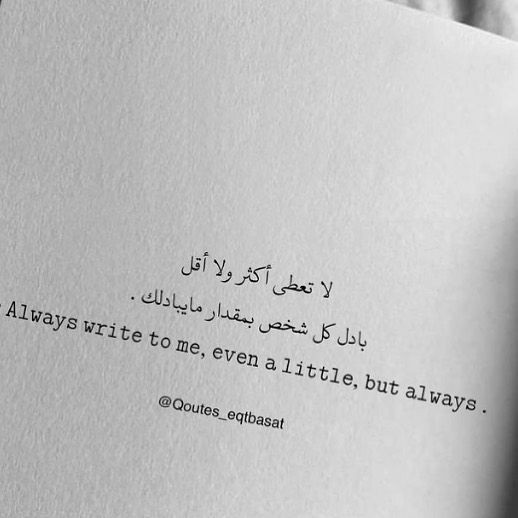 لا تعطى أكثر ولا أقل
بادل كل شخص بمقدار مايبادلك .
Always write to me, even a little, but always .
@Qoutes_eqtbasat